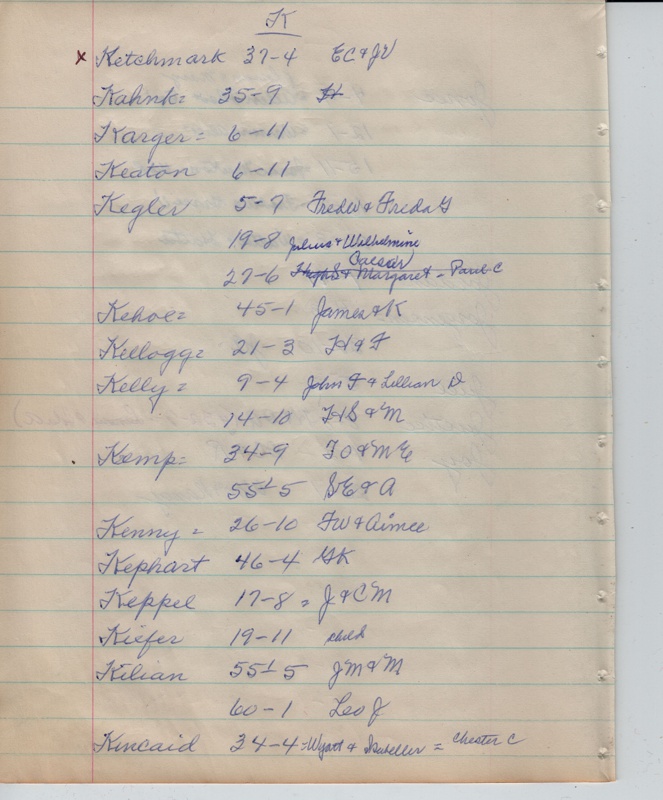 K
x Ketchmark 37-4 EC & JV
Kahnk = 35-9 H
Karger = 6-11
Keaton 6-11
Kegler 5-7 Fred W & Freda G
19-8 Julius & Wilhelmine
Caesar
27-6 Hugh S & Margaret = Paul C
Kehoe = 45-1 James & K
Kellogg = 21-3 H & F
Kelly = 9-4 John F & Lillian D
14-10 HS & M
Kemp = 34-9 FO & ME
55½-5 SE & A
Kenny = 26-10 FW & Aimee
Kephart 46-4 GK
Keppel 17-8 = J & CM
Kiefer 19-11 child
Kilian 55½-5 JM & M
60-1 Leo J
Kincaid 34-4 = Wyatt & = Chester C